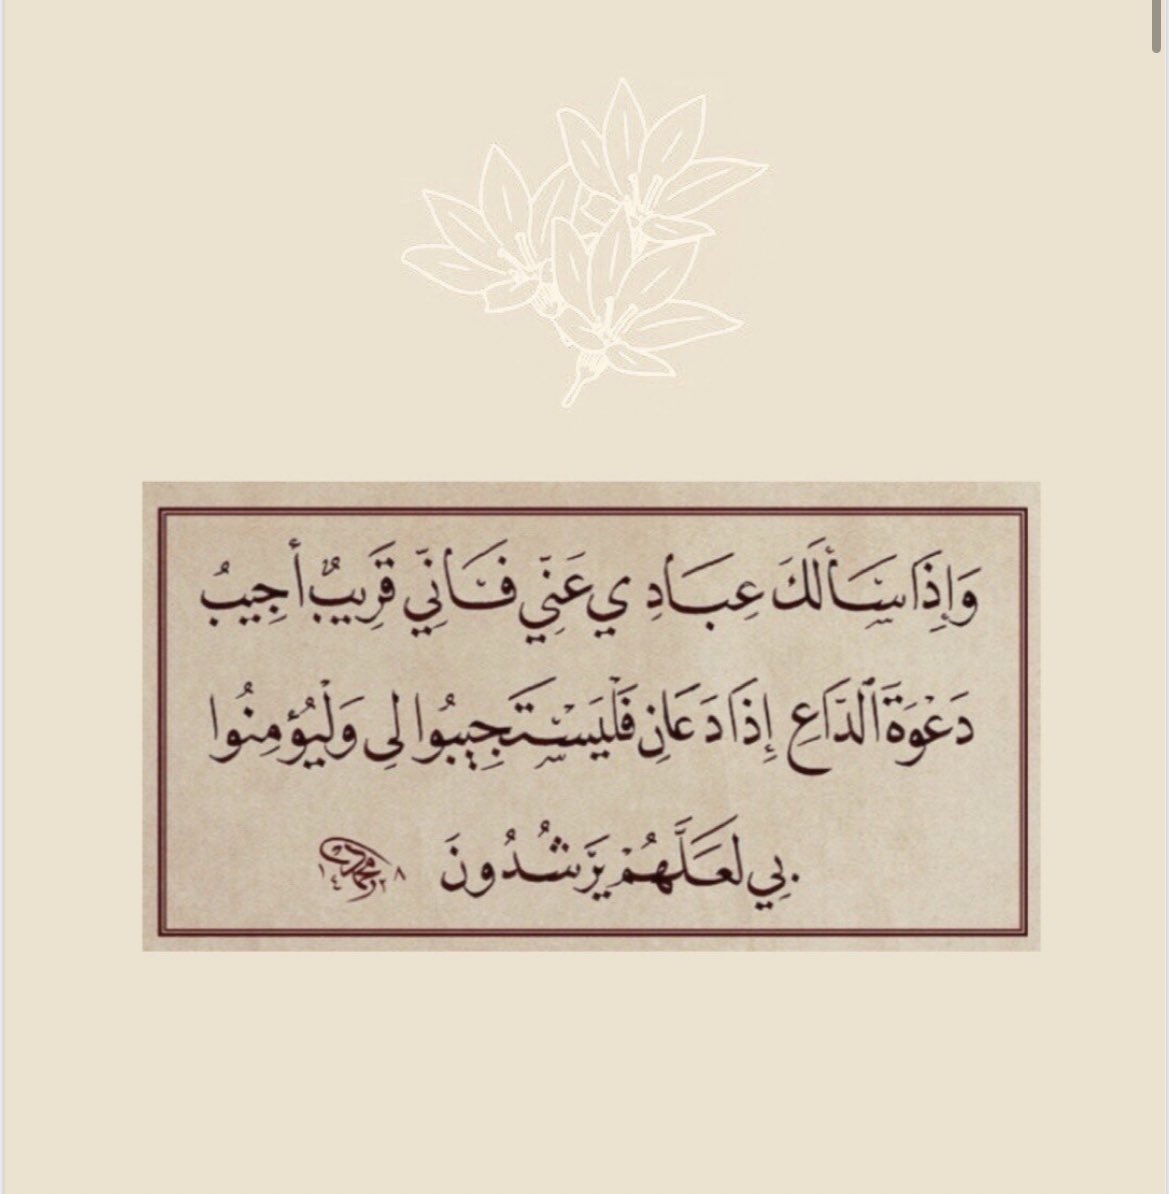 وَإِذَا سَأَلَكَ عِبَادِي عَنِّي فَإِنِّي قَرِيبٌ أُجِيبُ
دَعْوَةَ ٱلدَّاعِ إِذَا دَعَانِ فَلْيَسْتَجِيبُوا لِي وَلْيُؤْمِنُوا
بِي لَعَلَّهُمْ يَرْشُدُونَ